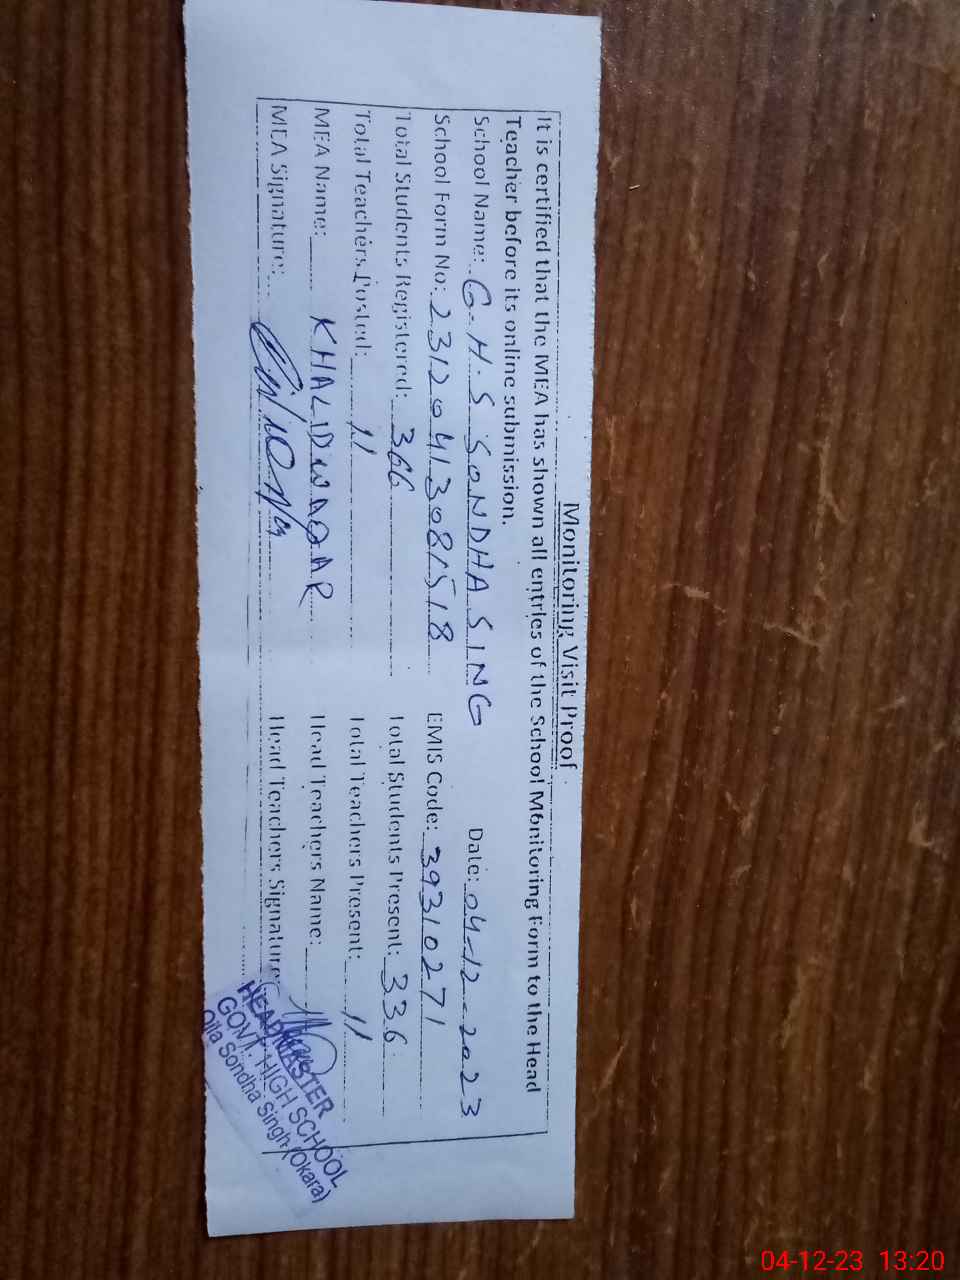 Monitoring Visit Proof
It is certified that the MEA has shown all entries of the School Monitoring Form to the Head
Teacher before its online submission.
School Name: G.H.S SONDHA SING Date: 04-12-2023
School Form No: 23120413081518 EMIS Code: 39310271
Total Students Registered: 366 Total Students Present: 336
Total Teachers Posted: 11 Total Teachers Present: 11
MEA Name: KHALID WAQAR Head Teachers Name:
MEA Signature: Head Teachers Signature:
HEADMASTER
GOVT. HIGH SCHOOL
Qila Sondha Singh (Okara)
04-12-23 13:20